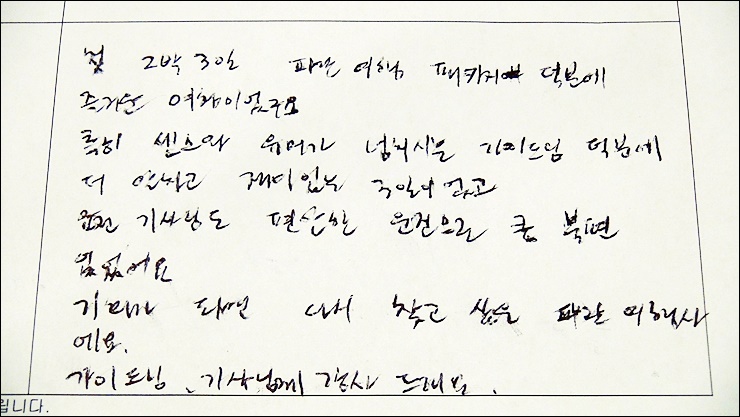 첫 2박 3일 파란 여행 패키지 덕분에
즐거운 여행이었구요
특히 센스와 유머가 넘치시는 가이드님 덕분에
더 알차고 재미있는 3일이 됐고
운전 기사님도 편안한 운전으로 큰 불편
없었어요
기회가 되면 다시 찾고 싶은 파란 여행사
에요.
가이드님, 기사님께 감사 드려요.
립니다.